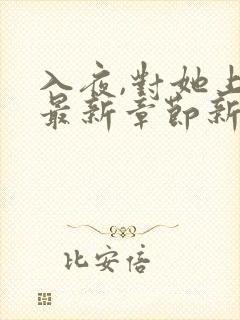 入夜,對她上
最新章節新
比安倍